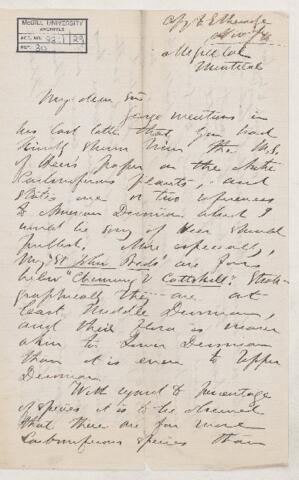 McGILL UNIVERSITY
ARCHIVES
ACC. NO.
REF.
McGill Col
Montreal
My dear Sir
George mentions in
his last letter that you had
kindly shown him the M.S.
of Heer's paper on the Arctic
Carboniferous plants, and
states one or two references
to American Devonian about which I
would be sorry if Heer should
publish. More especially,
my "St John Beds" are far
below "Chemung & Catskill". Strati-
graphically they are at
least Middle Devonian,
and their flora is nearer
akin to Lower Devonian
than it is even to Upper
Devonian.
With regard to percentage
of species it is to be observed
that there are far more
Carboniferous species than